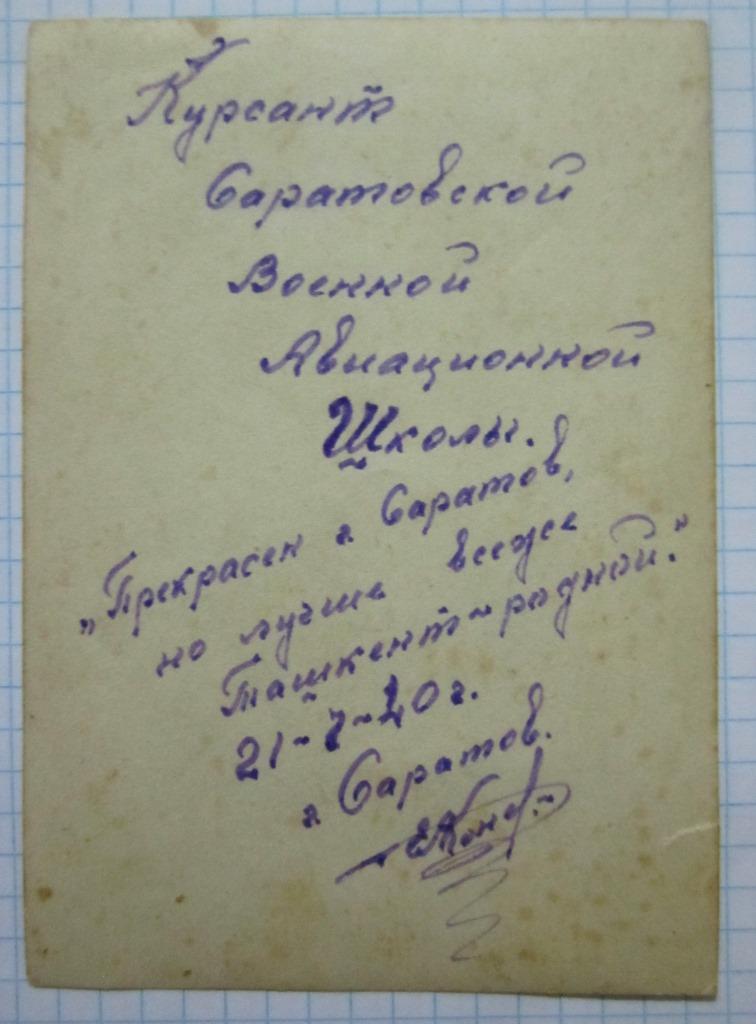 Курсант
Саратовской
Военной
Авиационной
Школы.
"Прекрасен г. Саратов,
но лучше всеже
Ташкент-родной."
21-7-40г.
г. Саратов.